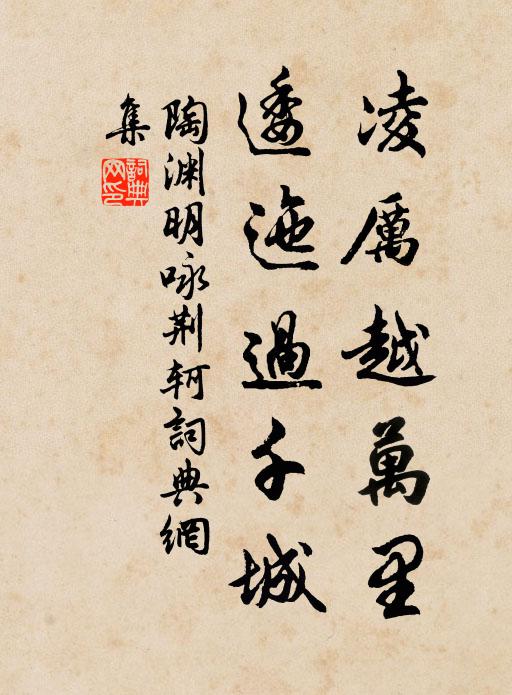 凌厲越萬里
逶迤過千城
陶渊明咏荆軻詞典網
集
詞典网印